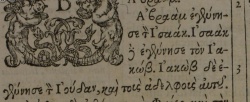 Ἀβραὰμ ἐγέννησε
σε τ Ἰσαάκ. Ἰσαὰκ
ἐγέννησε τὸν Ἰα-
κώβ. Ἰακὼβ δὲ ἐ-
γέννησε τ Ἰούδαν, καὶ τοὺς ἀδελφοὺς αὐτοῦ.
2
3